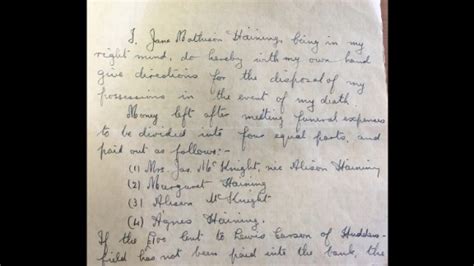 I, Jane Mathison Haining, being in my
right mind, do hereby with my own hand
give directions for the disposal of my
possessions in the event of my death
Money left after meeting funeral expenses
to be divided into four equal parts, and
paid out as follows:-
(1) Mrs. Jas. McKnight, née Alison Haining
(2) Margaret Haining
(3) Alison McKnight
(4) Agnes Haining.
If the lent to Lewis Carson of Hudders-
field has not been paid into the bank, the